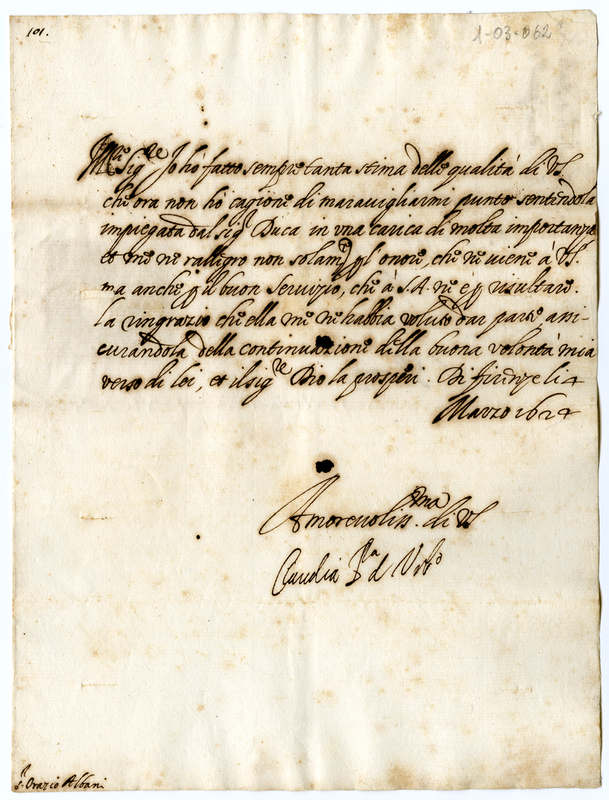 101.
1-03-062
M.re Sig.re Io hò fatto sempre tanta stima delle qualità di VS.
che ora non hò cagione di maravigliarmi punto sentendola
impiegata dal sig.r Duca in vna carica di molta importanza
et me ne rallegro non solam.te p l'onore, che ne viene à VS.
ma anche p il buon servizio, che à S.A. ne è p risultare.
La ringrazio che ella me ne habbia voluto dar parte assi-
curandola della continuazione della buona volontà mia
verso di lei, et il sig.re Dio la prosperi. Di firenze li 4
Marzo 1624
Amorevoliss.ma di VS
Claudia P.a d Urb.o
s.r Orazio Albani